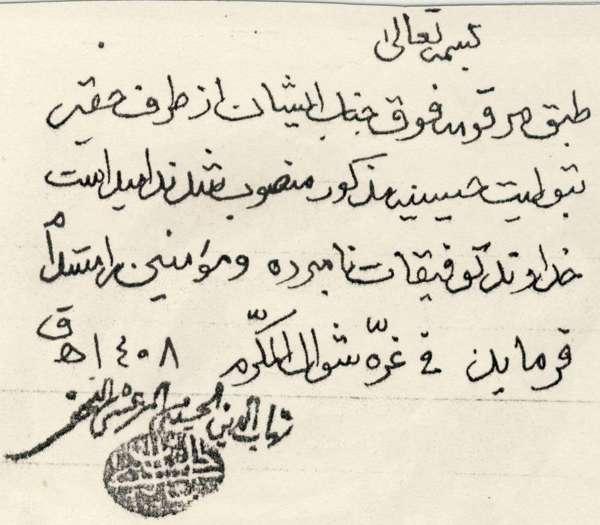 بسمه تعالی
طبق مرقومه فوق جناب ایشان از طرف حقیر
بتولیت حسینیه مذکور منصوب شدند امید است
خداوند توفیقات نامبرده و مؤمنین را مستداماً
فرماید فی غرّه شوال المکرّم ۱۴۰۸ ه‍ ق
شهاب الدین الحسینی المرعشی النجفی